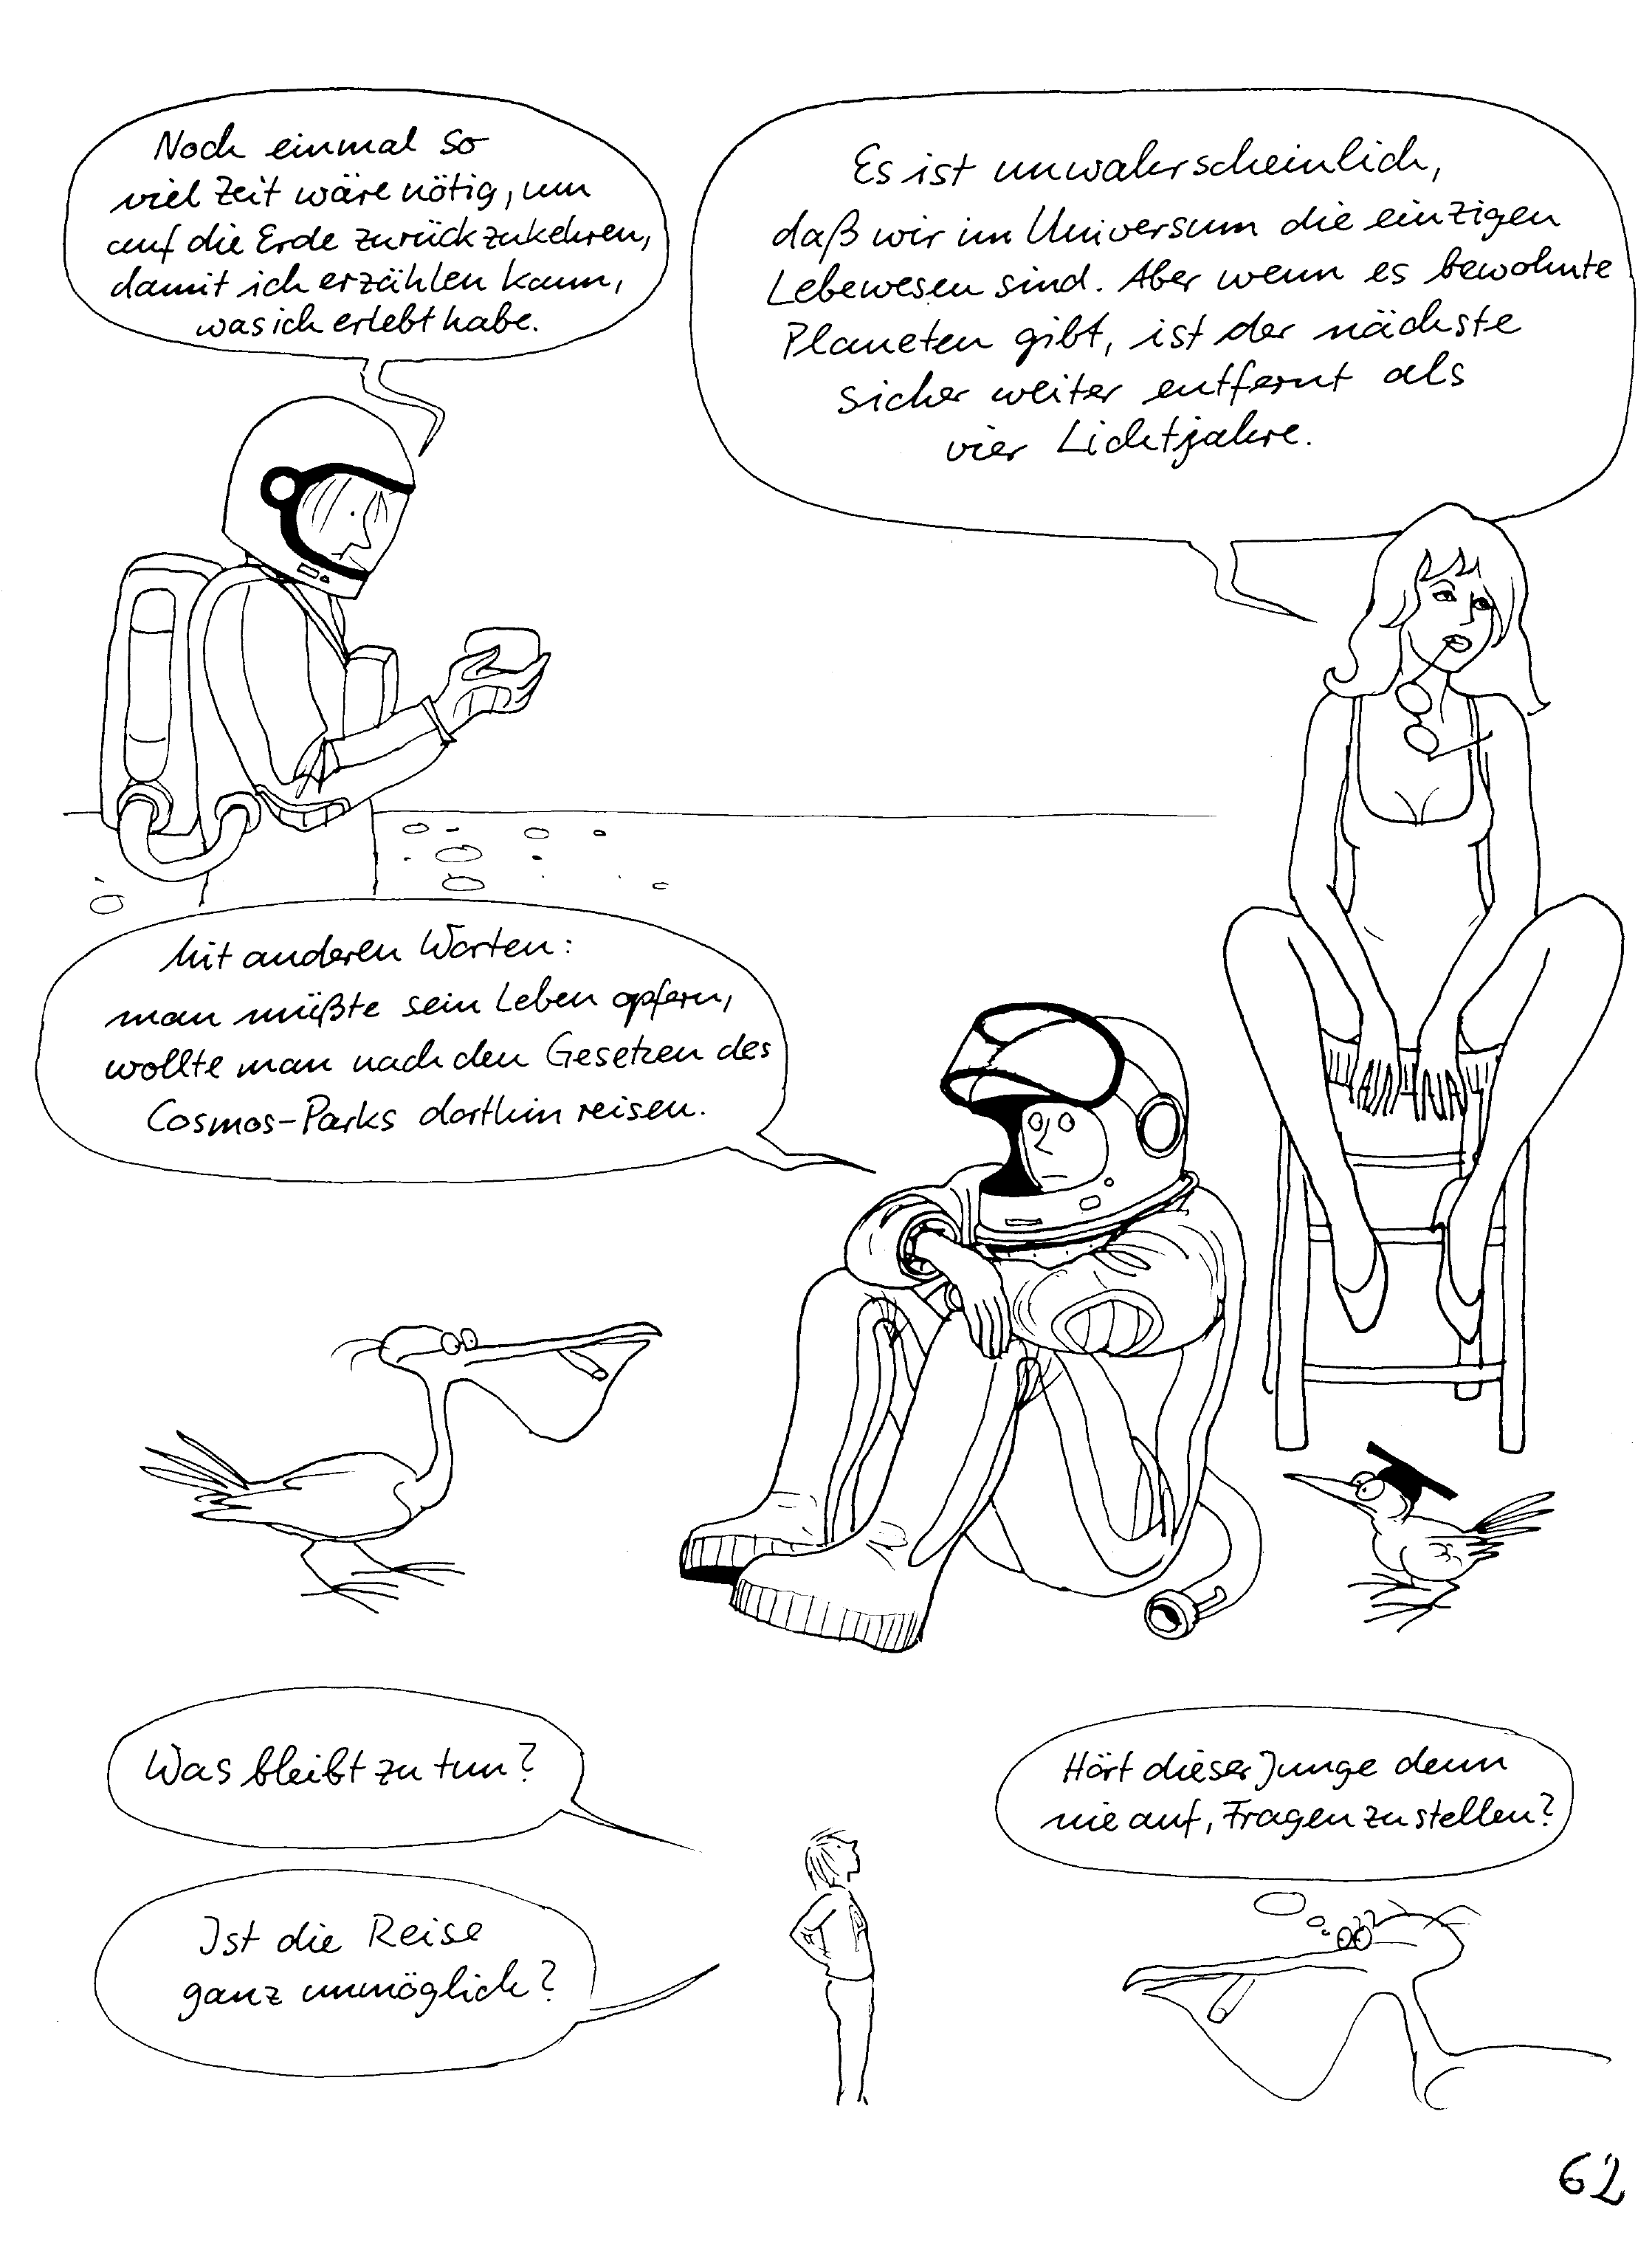 Noch einmal so
viel Zeit wäre nötig, um
auf die Erde zurückzukehren,
damit ich erzählen kann,
was ich erlebt habe.
Es ist unwahrscheinlich,
daß wir im Universum die einzigen
Lebewesen sind. Aber wenn es bewohnte
Planeten gibt, ist der nächste
sicher weiter entfernt als
vier Lichtjahre.
Mit anderen Worten:
man müßte sein Leben opfern,
wollte man nach den Gesetzen des
Cosmos-Parks dorthin reisen.
Was bleibt zu tun?
Hört dieser Junge denn
nie auf, Fragen zu stellen?
Ist die Reise
ganz unmöglich?
62